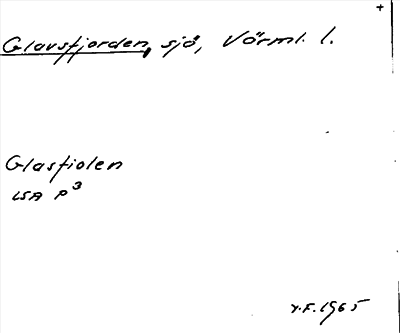 +
Glavsfjorden, sjö, Värml. l.
Glasfiolen
LSA P3
r.F. 1965